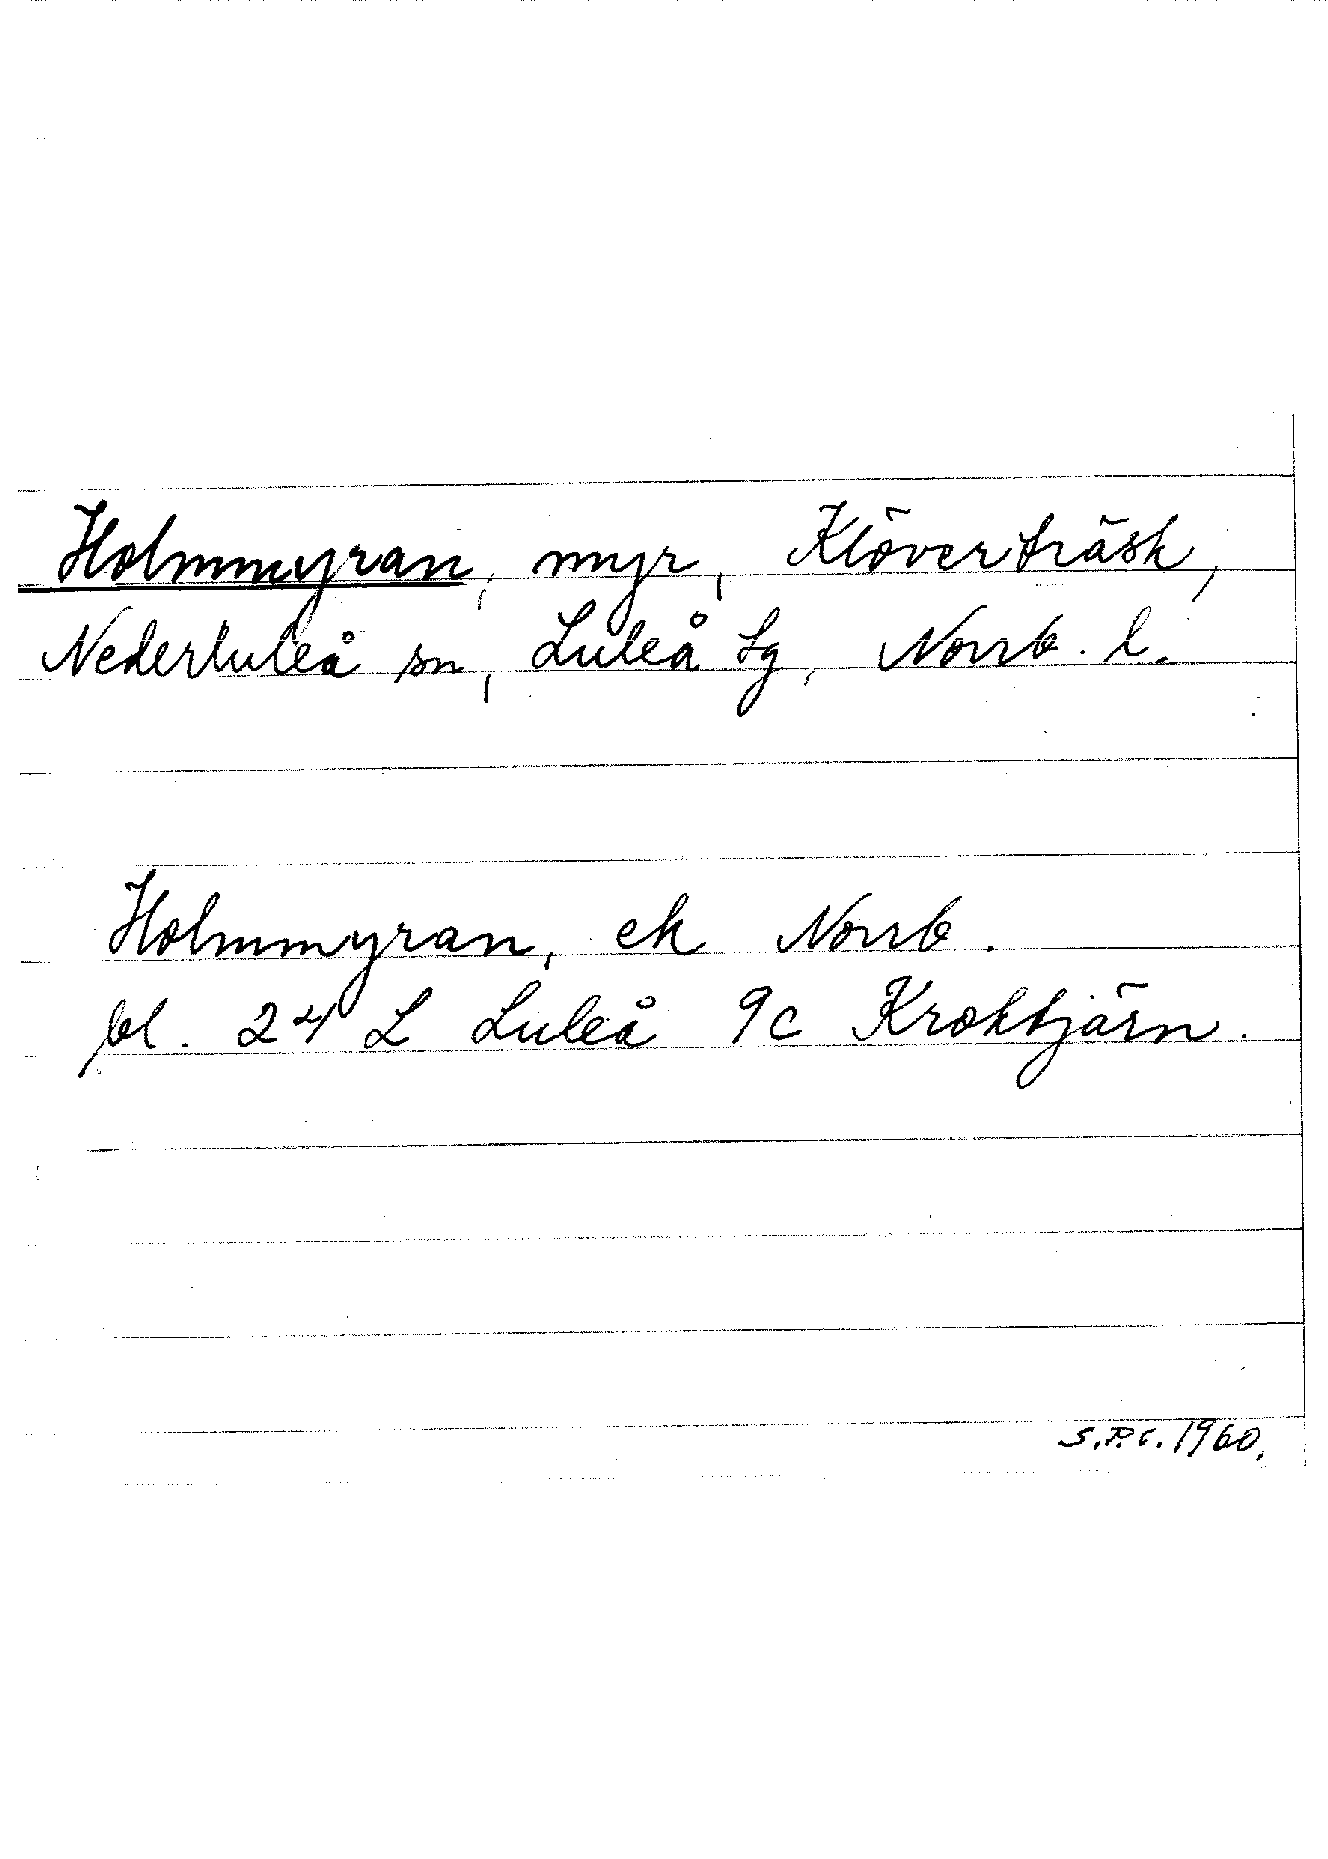 Holmmyran, myr, Klöverträsk,
Nederluleå sn, Luleå tg, Norrb. l.
Holmmyran, ek Norrb.
bl. 24 L Luleå 9c Kroktjärn.
S.P.C. 1960.